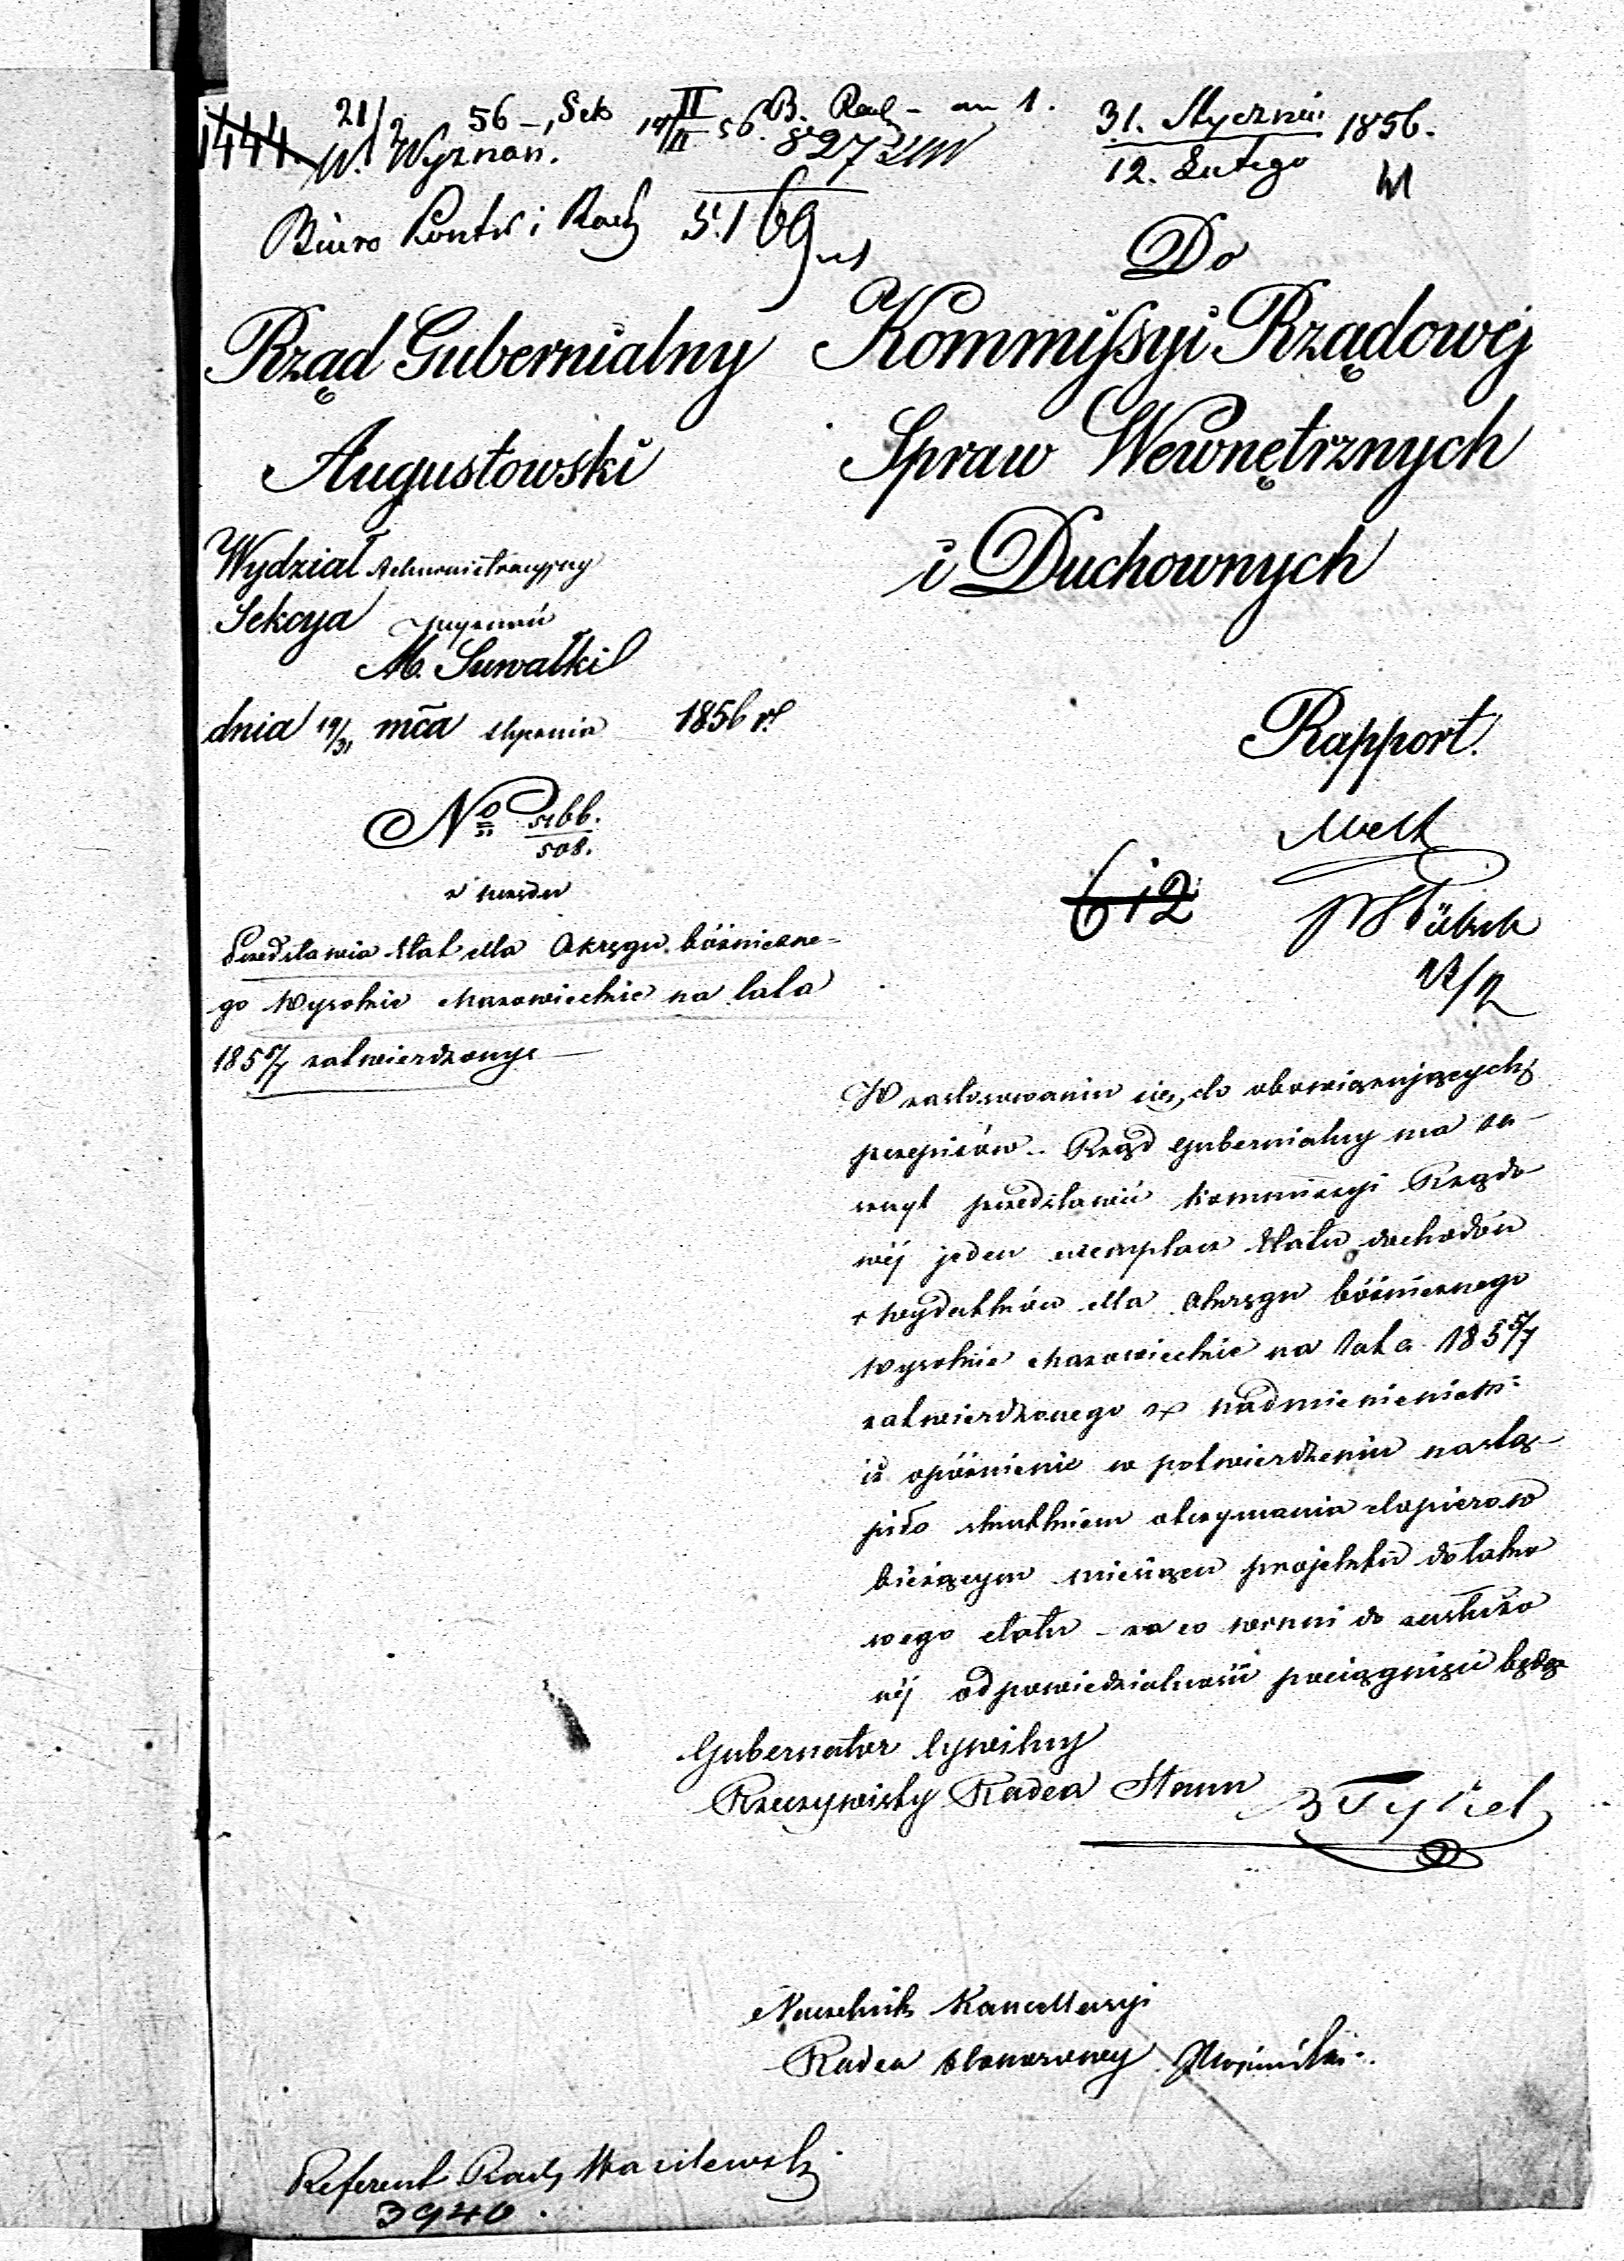 1444. 21/2 56 –, Sek 19/II II 56. B. Rach – an 1. 31. Stycznia 1856.
W. Wyznań. 827 12. Lutego
Biuro Kontr i Rach
Do
Rząd Gubernialny Kommissyi Rządowej
Augustowski Spraw Wewnętrznych
i Duchownych
Wydział Administracyjny
Sekcya Wyznań
M. Suwałki
dnia 19/31 mca stycznia 1856 r.
Rapport.
No
508.
z urzędu
612
Przedstawia etat dla Okręgu bóżniczne-
go Wysokie Mazowieckie na lata
185 5/7 zatwierdzony
W zastosowaniu się do obowiązujących
przepisów – Rząd Gubernialny ma za-
szczyt przedstawić Kommissyi Rządo
wéj jeden exemplarz Etatu dochodów
i wydatków dla Okręgu bóżnicznego
Wysokie Mazowieckie na lata 185 5/7
zatwierdzonego z nadmienieniem
iż opóźnienie w potwierdzeniu nastą-
piło skutkiem otrzymania dopiero w
bieżącym miesiącu projektu do tako
wego etatu – za co winni do zasłużo
néj odpowiedzialności pociągnięci będą
Gubernator Cywilny
Rzeczywisty Radca Stanu Tykel
Naczelnik Kancellaryi
Radca Honorowy
Referent Rach Wasilewski
3940.